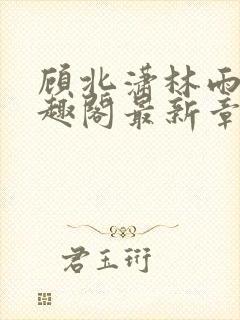 顾北潇林雨
趣阁最新章
君玉珩